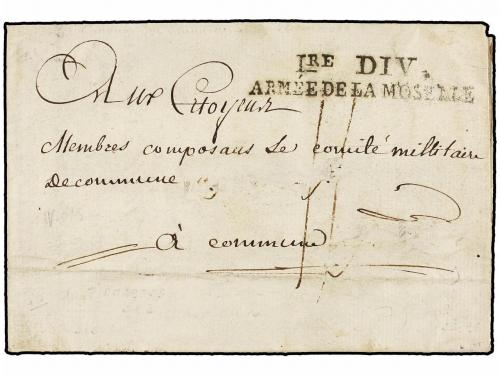 IRE DIV.
ARMÉE DE LA MOSELLE
Aux Citoyens
Membres composans Le comité millitaire
de commune
à commune